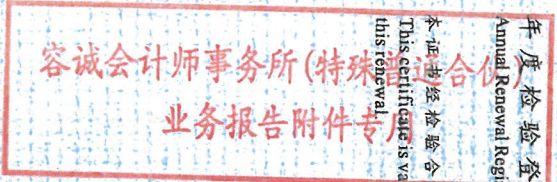 容诚会计师事务所(特殊普通合伙)
业务报告附件专用
年度检验登
Annual Renewal Regi
本证书经检验合
This certificate is va
this renewal.